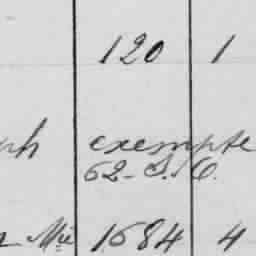 120 1
exempte
62 - S. C.
Mie 1684 4